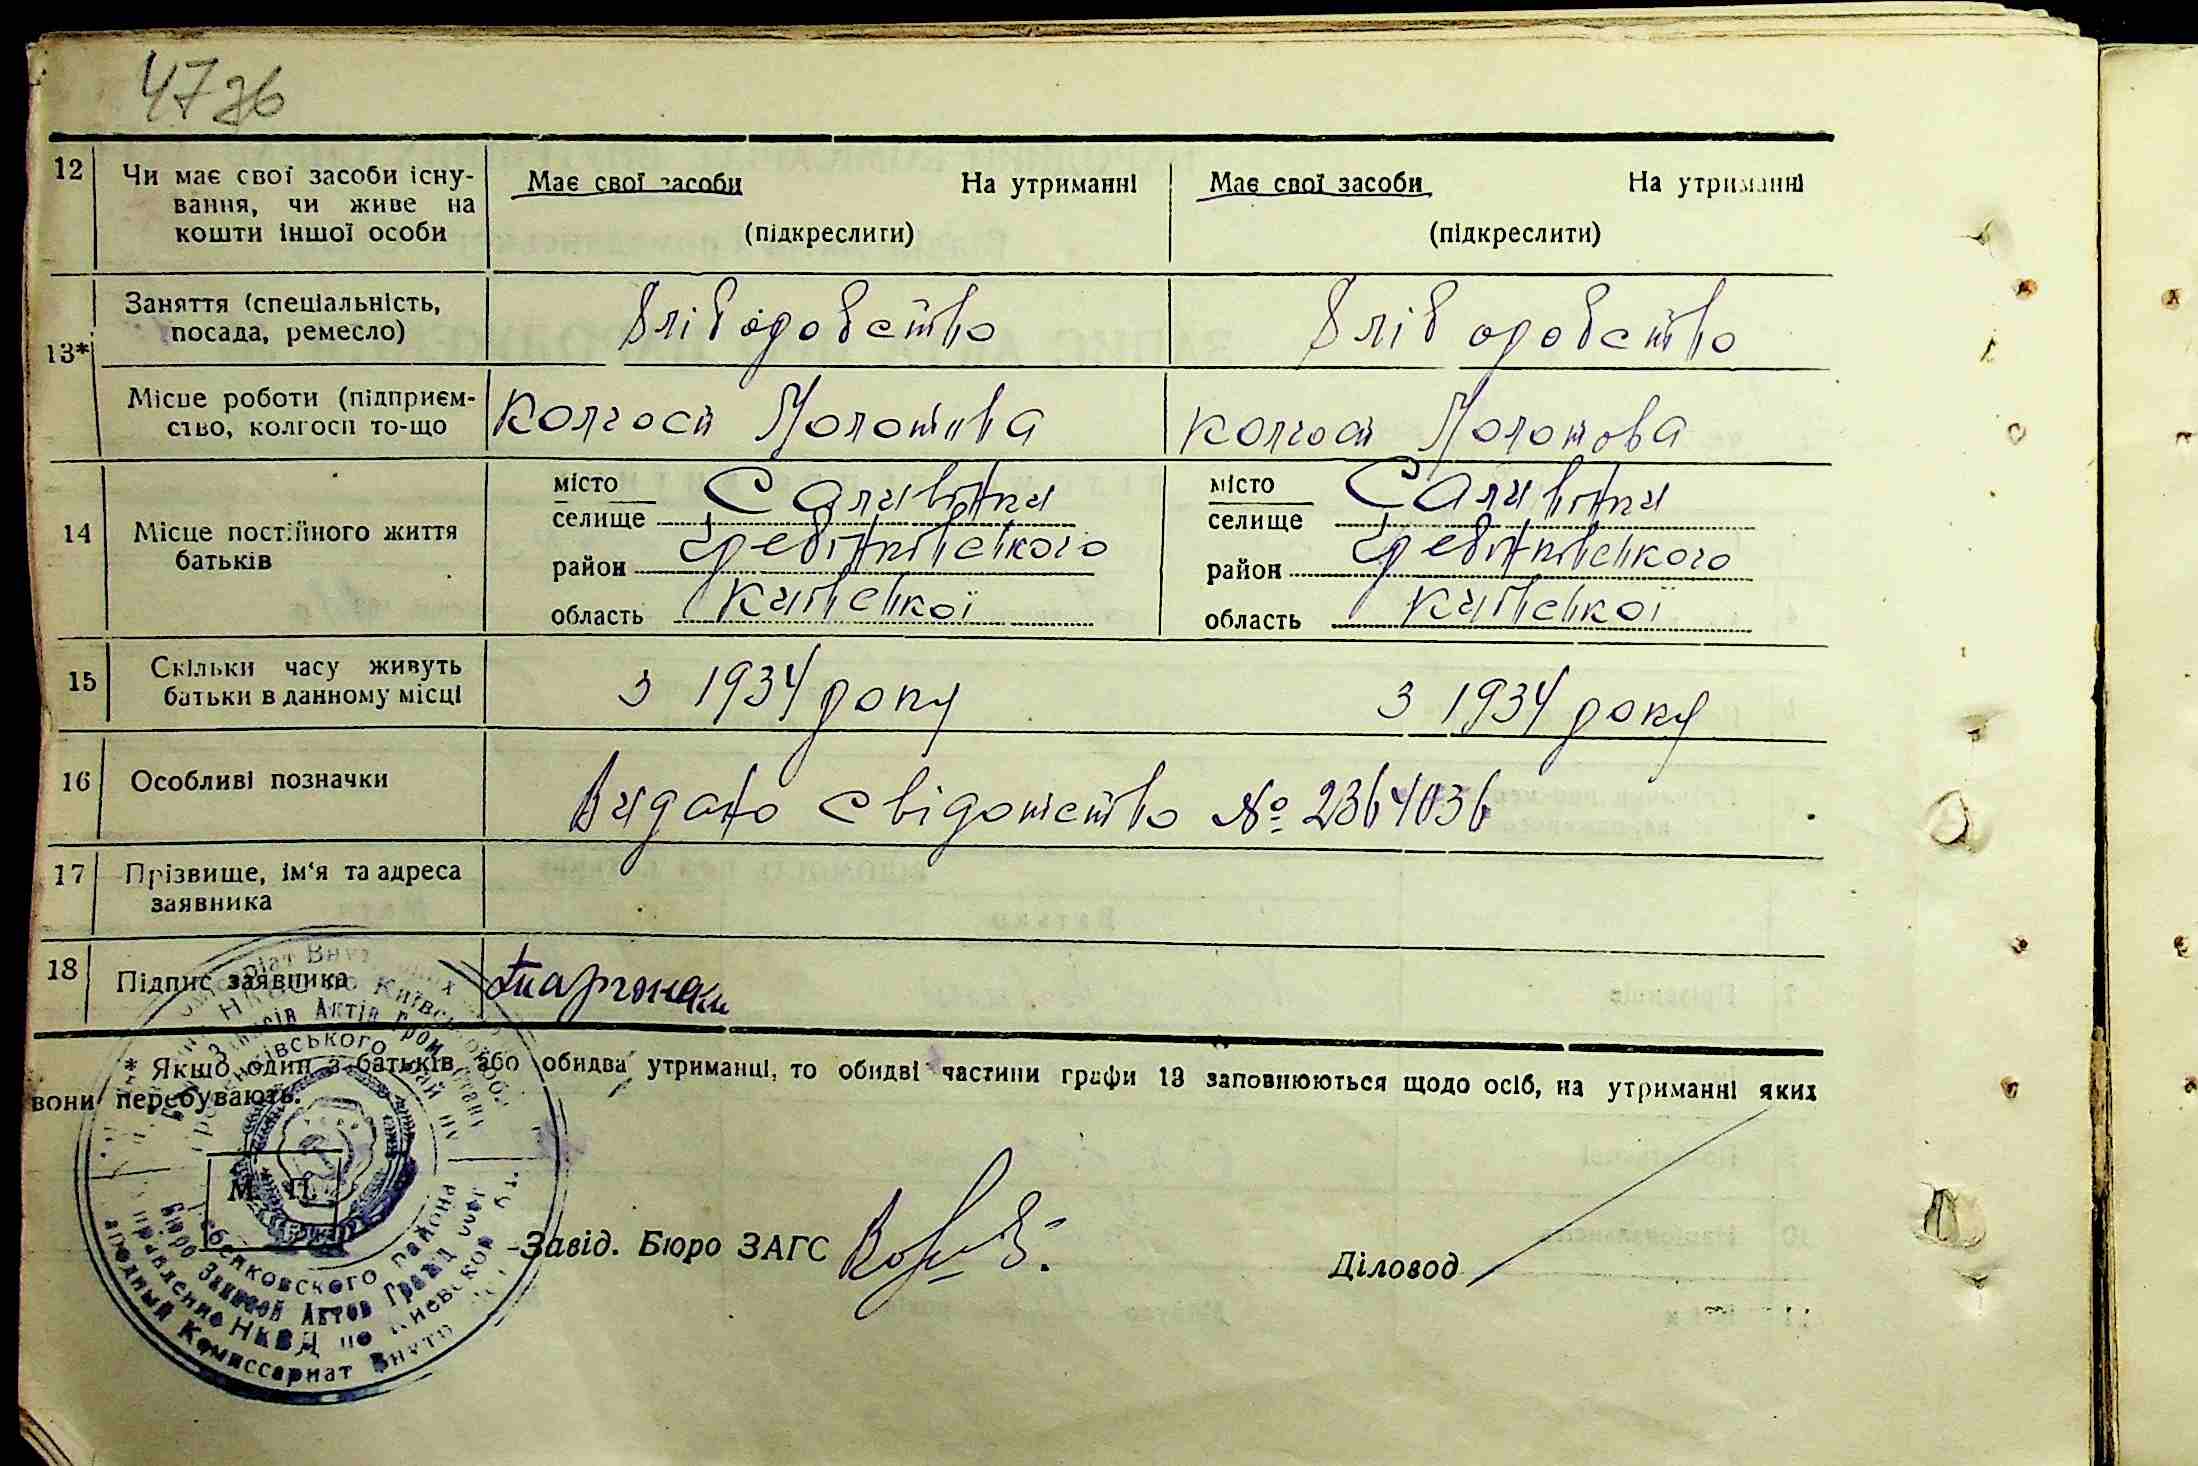 47зв
12 Чи має свої засоби існу-
вання, чи живе на
кошти іншої особи
Має свої засоби На утриманні
(підкреслити)
Має свої засоби На утриманні
(підкреслити)
13* Заняття (спеціальність,
посада, ремесло)
Хліборобство Хліборобство
Місце роботи (підприєм-
ство, колгосп то-що
колгосп Молотова колгосп Молотова
14 Місце постійного життя
батьків
місто
селище Саливінки
район Гребінківського
область Київської
місто
селище Саливінки
район Гребінківського
область Київської
15 Скільки часу живуть
батьки в данному місці
з 1934 року з 1934 року
16 Особливі позначки
Видано свідотство №
17 Прізвище, ім'я та адреса
заявника
18 Підпис заявника
* Якщо один з батьків або обидва утриманці, то обидві частини графи 13 заповнюються щодо осіб, на утриманні яких
вони перебувають.
М. П.
Завід. Бюро ЗАГС
Діловод
Гребенковского района
Бюро Записей Актов Гражд
Управление НКВД по Киевской
Народный Комиссариат Внутр